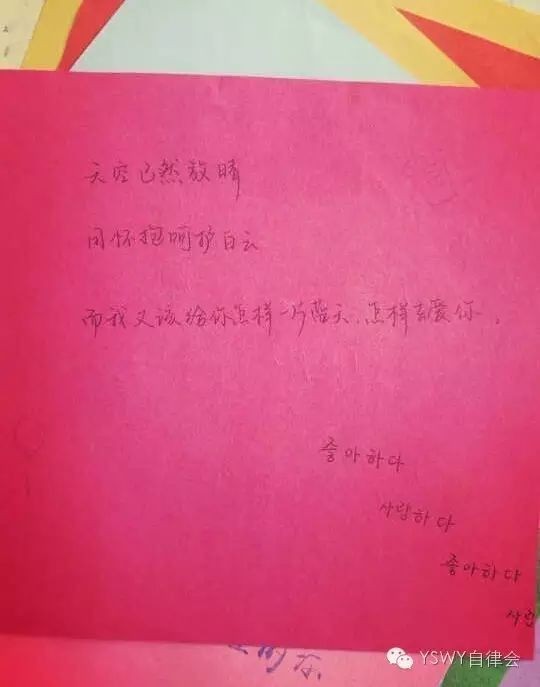 天空已然放晴
用怀抱呵护白云
而我又该给你怎样一片蓝天，怎样去爱你。
좋아하다
사랑하다
좋아하다
사랑
YSWY自律会